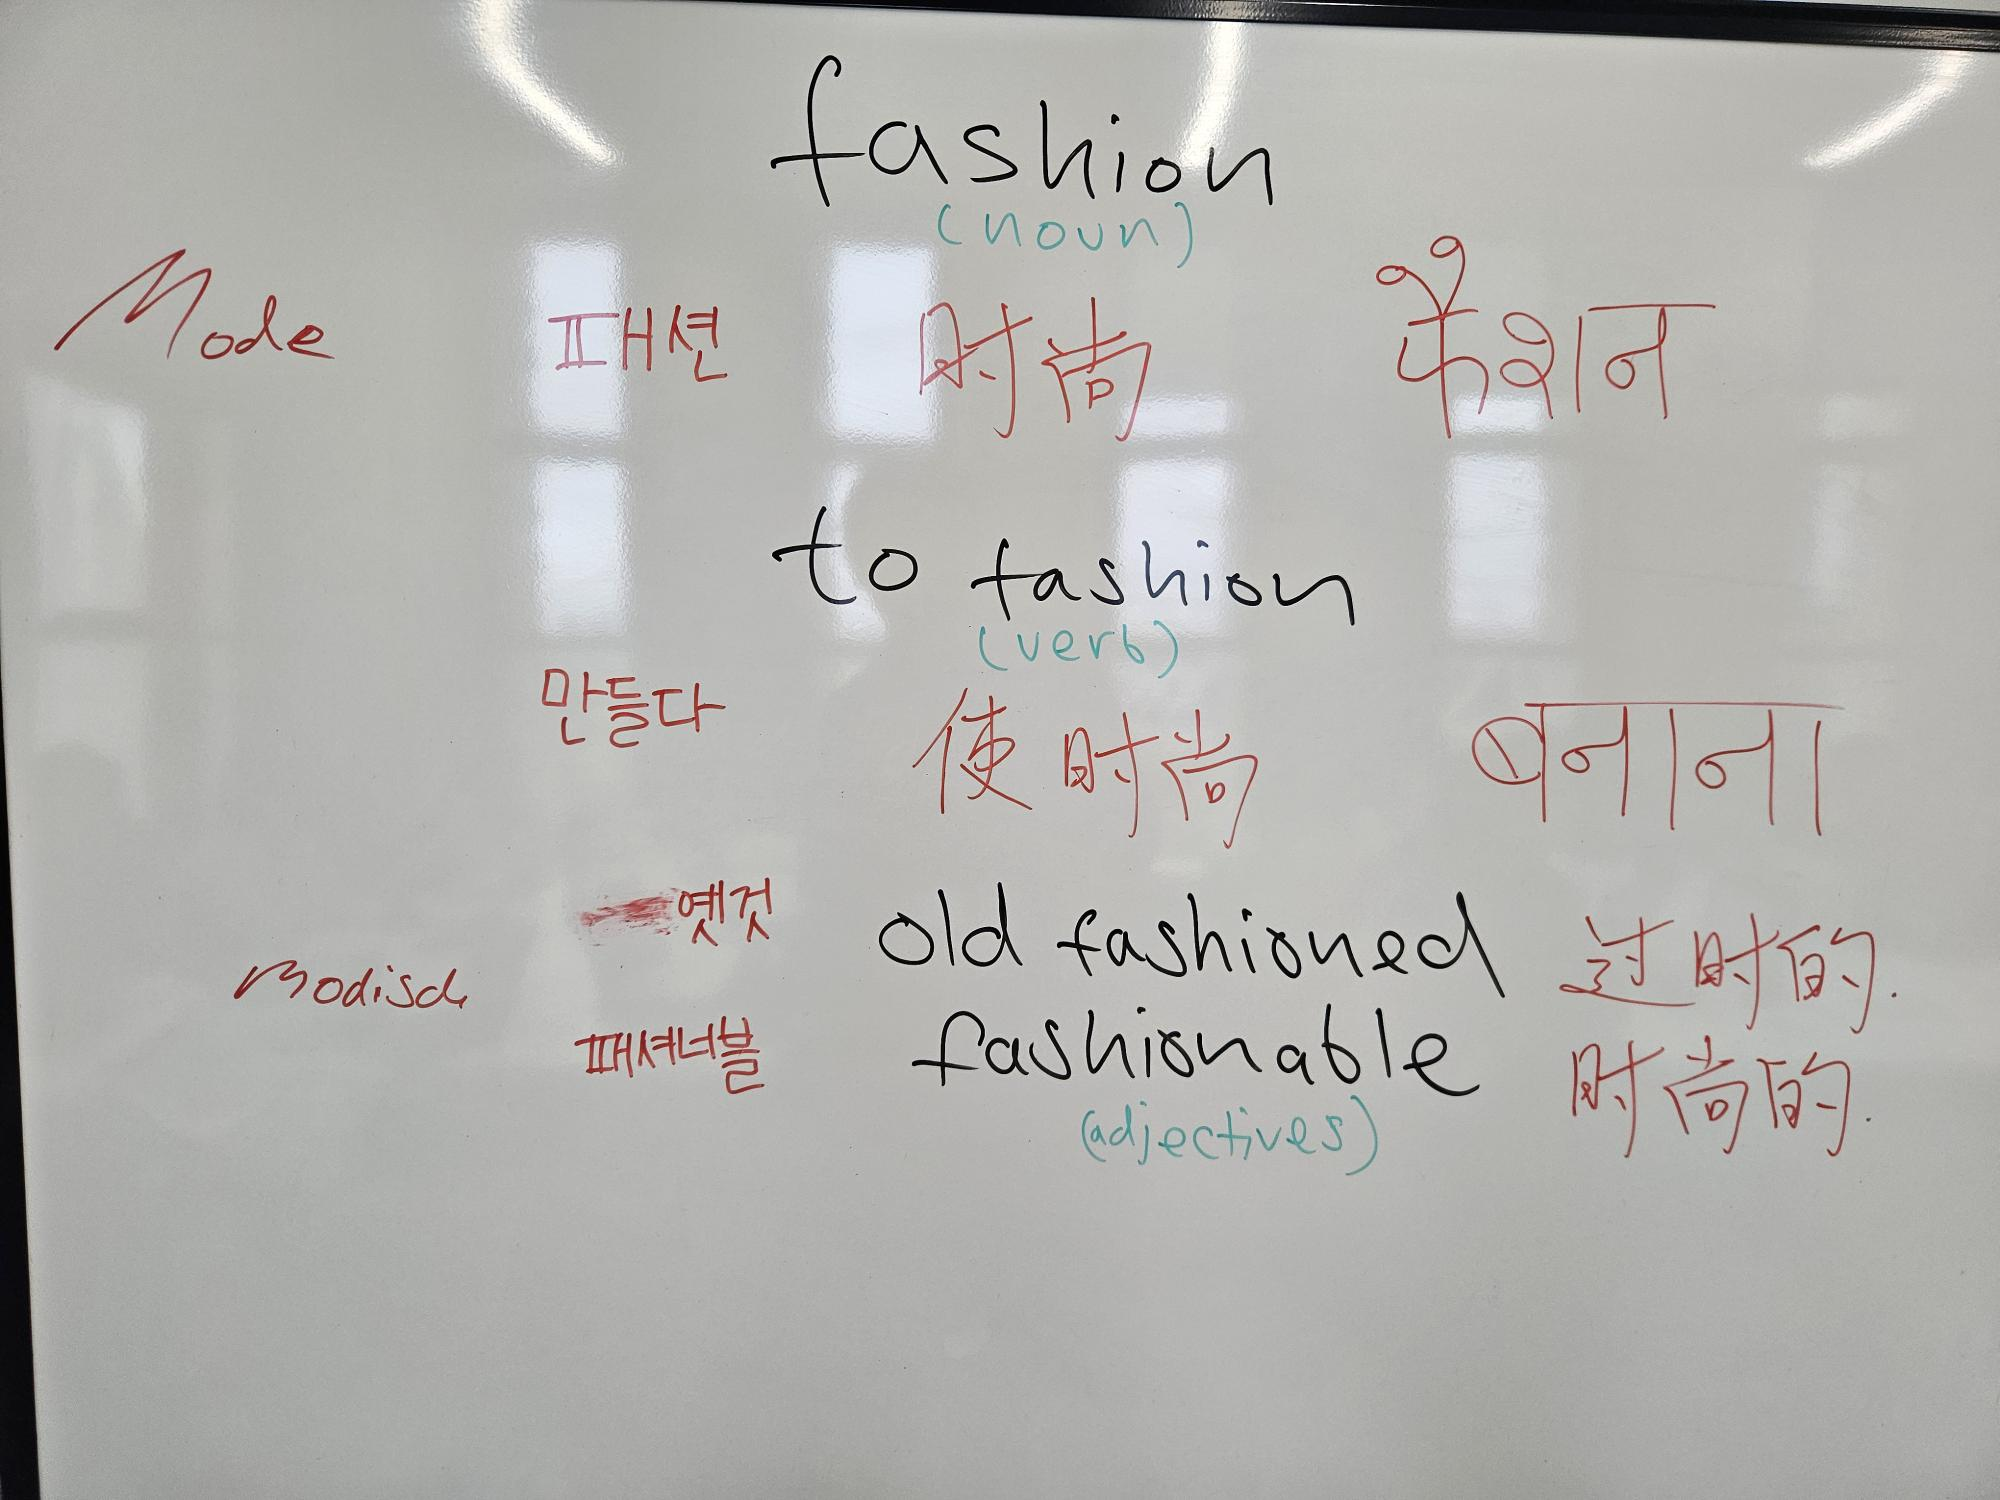 fashion
(noun)
Mode 패션 时尚 फैशन
to fashion
(verb)
만들다 使时尚 बनाना
옛것 old fashioned 过时的.
modisch
패셔너블 fashionable 时尚的.
(adjectives)